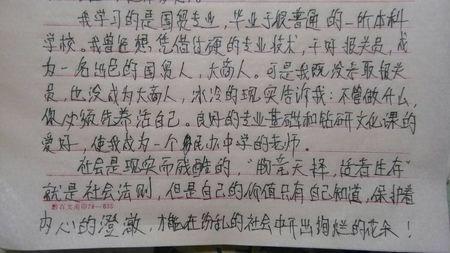 我学习的是国贸专业，毕业于很普通的一所本科
学校。我曾经想凭借过硬的专业技术，干好报关员，成
为一名出色的国贸人，大商人。可是我既没考取报关
员，也没成为大商人，冰冷的现实告诉我：不管做什么，
你必须先养活自己。良好的专业基础和钻研文化课的
爱好，使我成为一个民办中学的老师。
社会是现实而残酷的，“物竞天择，适者生存”
就是社会法则，但是自己的价值只有自己知道，保护着
内心的澄澈，才能在纷乱的社会中开出绚烂的花朵！